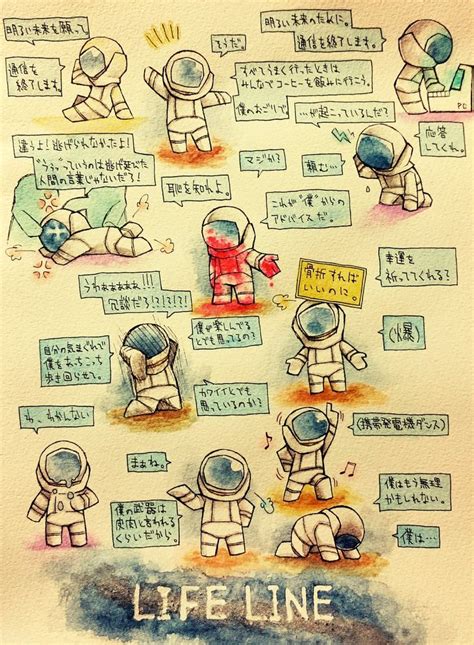 明るい未来を願って
通信を
終了します。
そうだ。
明るい未来のために。
通信を終了します。
すべてうまく行ったときは
みんなでコーヒーを飲みに行こう。
僕のおごりで
PC
違うよ!逃げられなかったよ!
"ううっ"っていうのは逃げ延びた
人間の言葉じゃないだろ!
…が起こっているんだ?
応答
してくれ。
マジか?
頼む…
恥を知れよ。
これが"僕"からの
アドバイスだ。
骨折すれば
いいのに。
幸運を
祈っててくれる?
うわぁぁぁぁ!!!
冗談だろ!?!?!?!
僕が楽しんでる
とでも思ってるの?
(火暴)
自分の気まぐれで
僕をあちこち
歩き回らせて。
カワイイとでも
思っているのか?
わ、わかんない
(携帯発電機ダンス)
まぁね。
僕の武器は
皮肉と言われる
くらいだから。
僕はもう無理
かもしれない。
僕は…
LIFE LINE